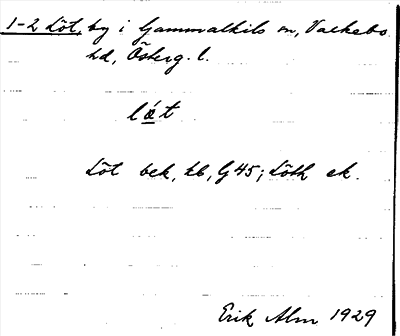 1-2 Löt, by i Gammalkils sn, Valkebo
hd, Österg. l.
lø̀t
Löt bek, kb, G 45; Löth ek.
Erik Alm 1929